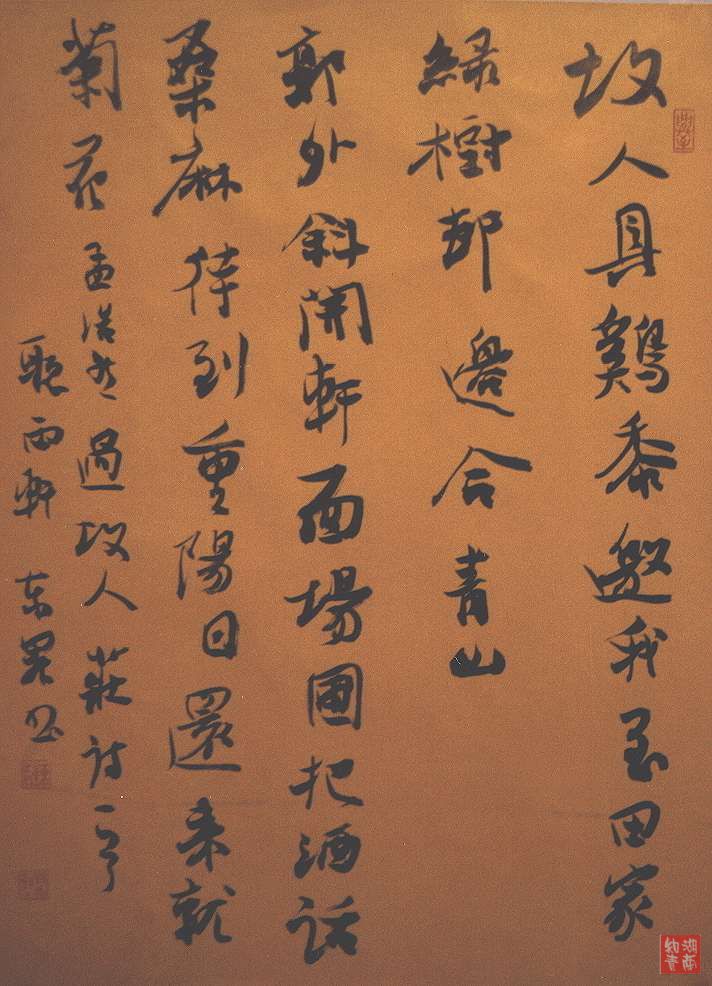 故人具鷄黍邀我至田家
緑樹邨邊合青山
郭外斜開軒面場圃把酒話
桑麻待到重陽日還来就
菊花 孟浩然過故人莊詩一首
聽雨軒 书
湖南